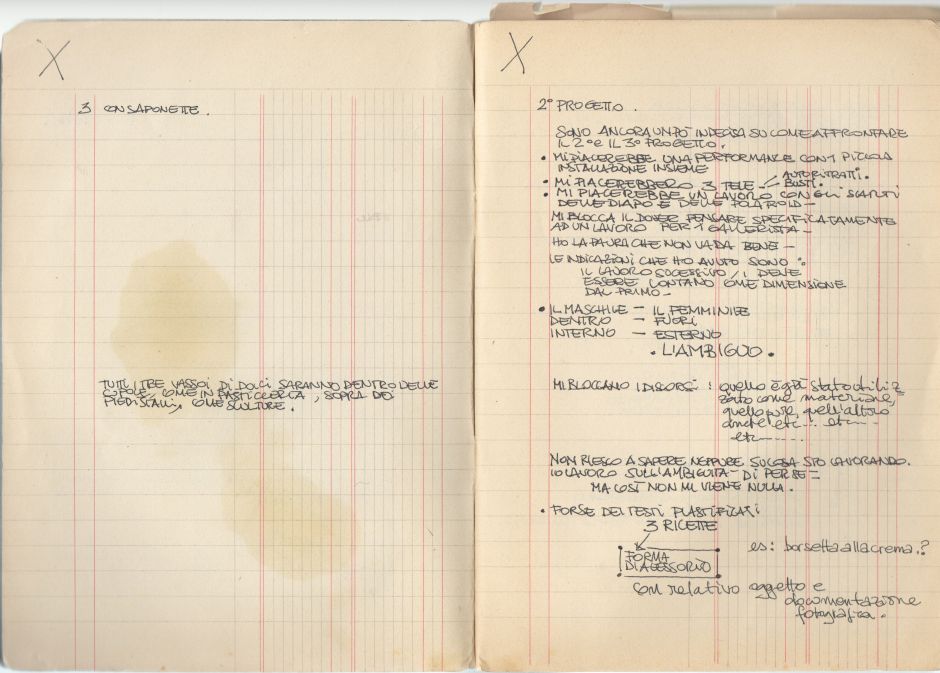 X
3 CON SAPONETTE.
TUTTI I TRE VASSOI DI DOLCI SARANNO DENTRO DELLE
CUPOLE, COME IN PASTICCERIA, SOPRA DEI
PIEDISTALLI, COME SCULTURE.
X
2° PROGETTO.
SONO ANCORA UN PO' INDECISA SU COME AFFRONTARE
IL 2° E IL 3° PROGETTO.
• MI PIACEREBBE UNA PERFORMANCE CON 1 PICCOLA
INSTALLAZIONE INSIEME
• MI PIACEREBBERO 3 TELE - AUTORITRATTI.
BUSTI.
• MI PIACEREBBE UN LAVORO CON GLI SCARTI
DELLE DIAPO E DELLE POLAROID -
MI BLOCCA IL DOVER PENSARE SPECIFICATAMENTE
AD UN LAVORO PER 1 GALLERISTA -
HO LA PAURA CHE NON VADA BENE -
LE INDICAZIONI CHE HO AVUTO SONO:
IL LAVORO SUCCESSIVO / I DEVE
ESSERE LONTANO COME DIMENSIONE
DAL PRIMO -
• IL MASCHILE - IL FEMMINILE
DENTRO - FUORI
INTERNO - ESTERNO
• L'AMBIGUO •
MI BLOCCANO I DISCORSI: quello è già stato utiliz
zato come materiale,
quello pure, quell'altro
anche etc... etc---
etc------
NON RIESCO A SAPERE NEPPURE SU COSA STO LAVORANDO.
IO LAVORO SULL'AMBIGUITA - DI PER SE -
MA COSÌ NON MI VIENE NULLA.
• FORSE DEI TESTI PLASTIFICATI
3 RICETTE
FORMA
DI ACCESSORIO
es: borsetta alla crema.?
con relativo oggetto e
documentazione
fotografica.